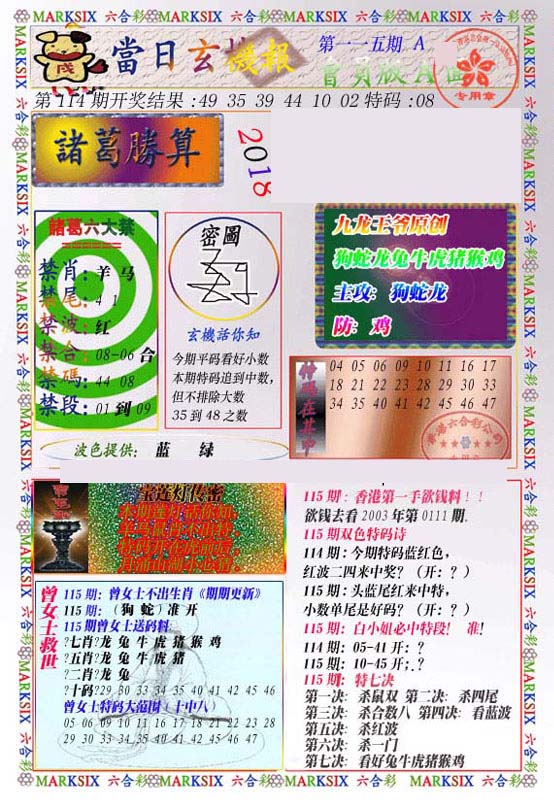 MARKSIX 六合彩 MARKSIX 六合彩 MARKSIX 六合彩 MARKSIX 六合彩 MARKSIX 六合彩
當日玄機報
第一一五期 A
會員版A面
专用章
第114期开奖结果:49 35 39 44 10 02特码:08
諸葛勝算
2018
諸葛六大禁
禁肖:羊 马
禁尾:4 1
禁波:红
禁合:08-06 合
禁碼:44 08
禁段:01 到 09
密圖
玄機話你知
今期平码看好小数
本期特码追到中数,
但不排除大数
35 到 48 之数
九龙王爷原创
狗蛇龙兔牛虎猪猴鸡
主攻: 狗蛇龙
防: 鸡
特碼在其中
04 05 06 09 10 11 16 17
18 21 22 23 28 29 30 33
34 35 40 41 42 45 46 47
波色提供: 蓝 绿
宝莲灯传密
115期: 香港第一手欲钱料!!
欲钱去看2003年第0111期.
115期双色特码诗
114期:今期特码蓝红色,
红波二四来中奖? (开:?)
115期:头蓝尾红来中特,
小数单尾是好码? (开:?)
115期: 白小姐必中特段! 准!
114期: 05-41 开:?
115期: 10-45 开;.?
115期: 特七决
第一决: 杀鼠双 第二决: 杀四尾
第三决: 杀合数八 第四决: 看蓝波
第五决: 杀红波
第六决: 杀一门
第七决: 看好兔牛虎猪猴鸡
曾女士救世
115期: 曾女士不出生肖《期期更新》
115期: (狗 蛇) 准开
115期曾女士送码料:
?七肖?龙 兔 牛 虎 猪 猴 鸡
?五肖?龙 兔 牛 虎 猪
?二肖?龙 兔
?十码?29 30 33 34 35 40 41 42 45 46
曾女士特码大范围(十中八)
05 06 09 10 11 16 17 18 21 22 23 28
29 30 33 34 35 40 41 42 45 46 47
MARKSIX 六合彩 MARKSIX 六合彩 MARKSIX 六合彩 MARKSIX 六合彩 MARKSIX 六合彩